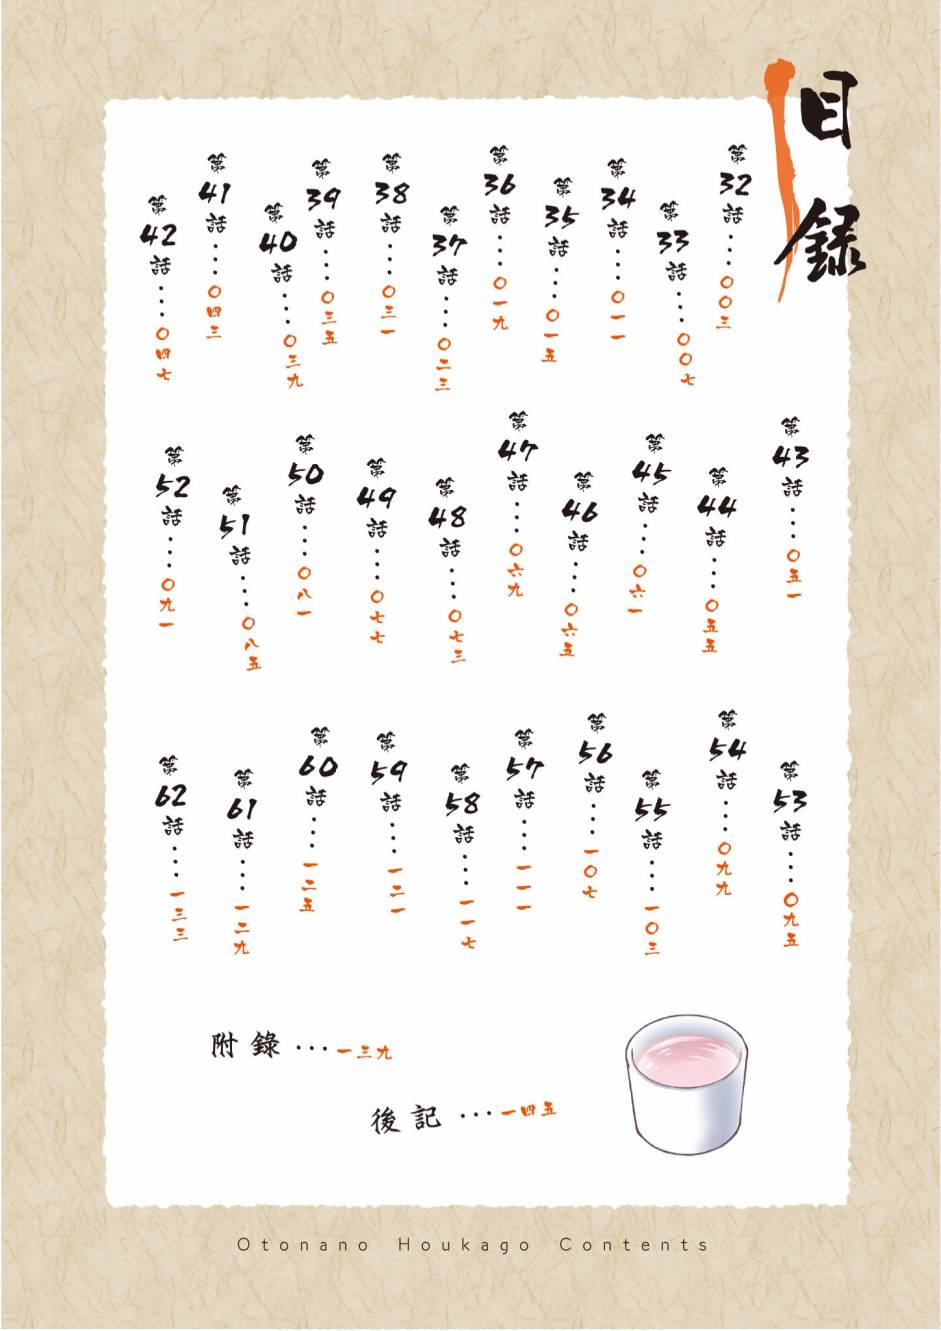 目錄
第32話····〇〇三
第33話····〇〇七
第34話····〇一一
第35話····〇一五
第36話····〇一九
第37話····〇二三
第38話····〇三一
第39話····〇三五
第40話····〇三九
第41話····〇四三
第42話····〇四七
第43話····〇五一
第44話····〇五五
第45話····〇六一
第46話····〇六五
第47話····〇六九
第48話····〇七三
第49話····〇七七
第50話····〇八一
第51話····〇八五
第52話····〇九一
第53話····〇九五
第54話····〇九九
第55話····一〇三
第56話····一〇七
第57話····一一一
第58話····一一七
第59話····一二一
第60話····一二五
第61話····一二九
第62話····一三三
附錄···一三九
後記···一四五
Otonano Houkago Contents